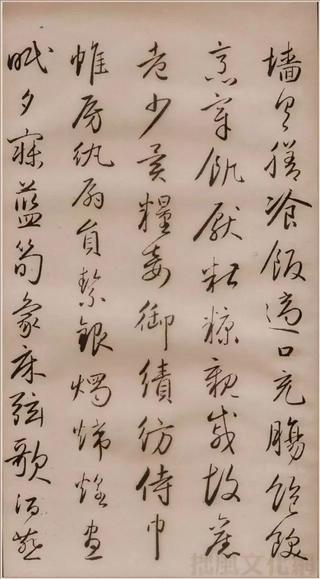 墙具膳飡飯適口充腸飽飫
烹宰飢厭糟糠親戚故舊
老少異糧妾御績紡侍巾
帷房紈扇員絜銀燭煒煌晝
眠夕寐藍筍象床弦歌酒讌